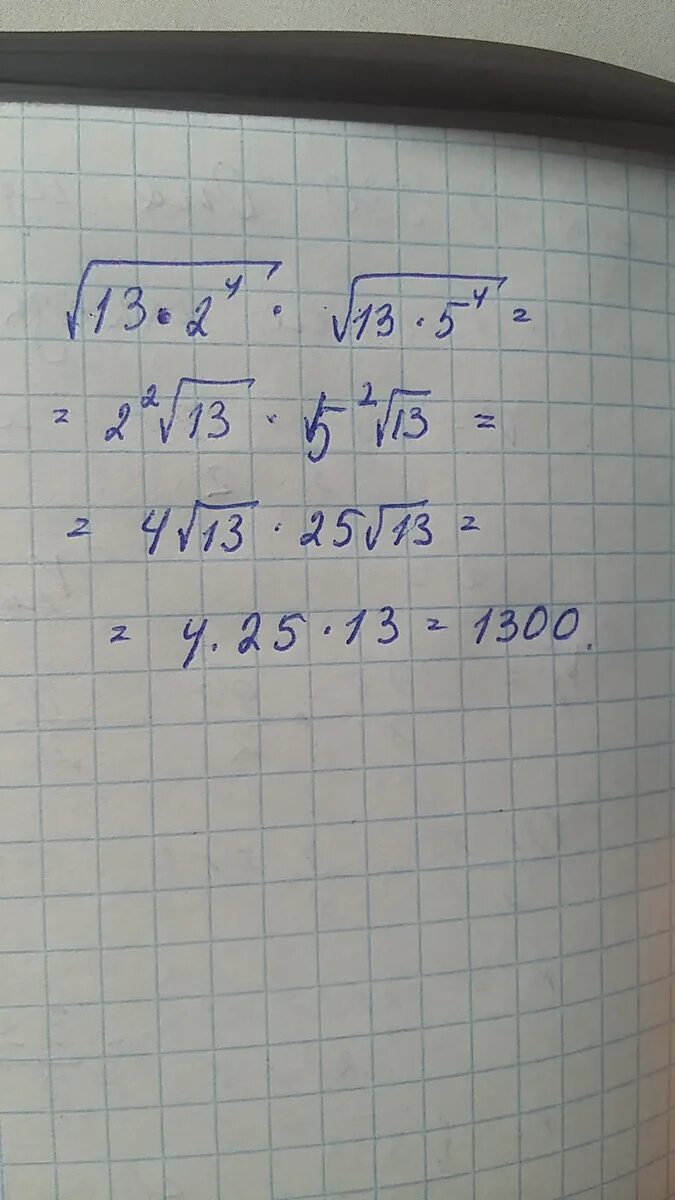 √(13 · 2⁴) · √(13 · 5⁴) =
= 2²√13 · 5²√13 =
= 4√13 · 25√13 =
= 4 · 25 · 13 = 1300.